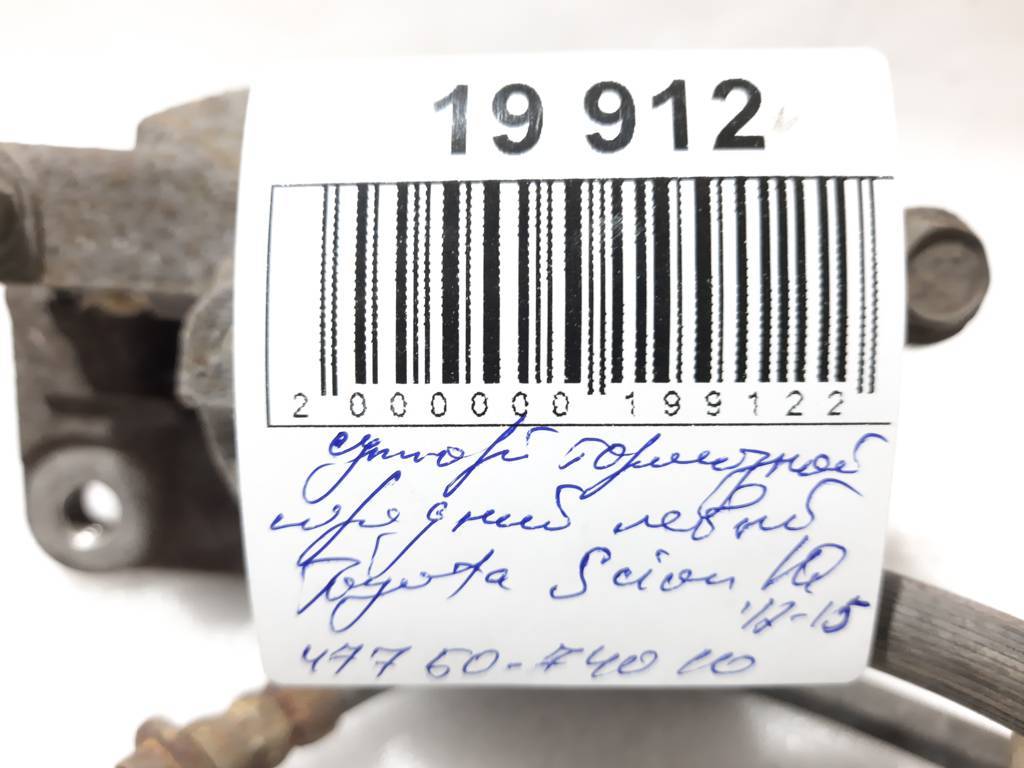 19 912
2 000000 199122
супорт тормозной
передний левый
Toyota Scion IQ
'12-15
47750-74010